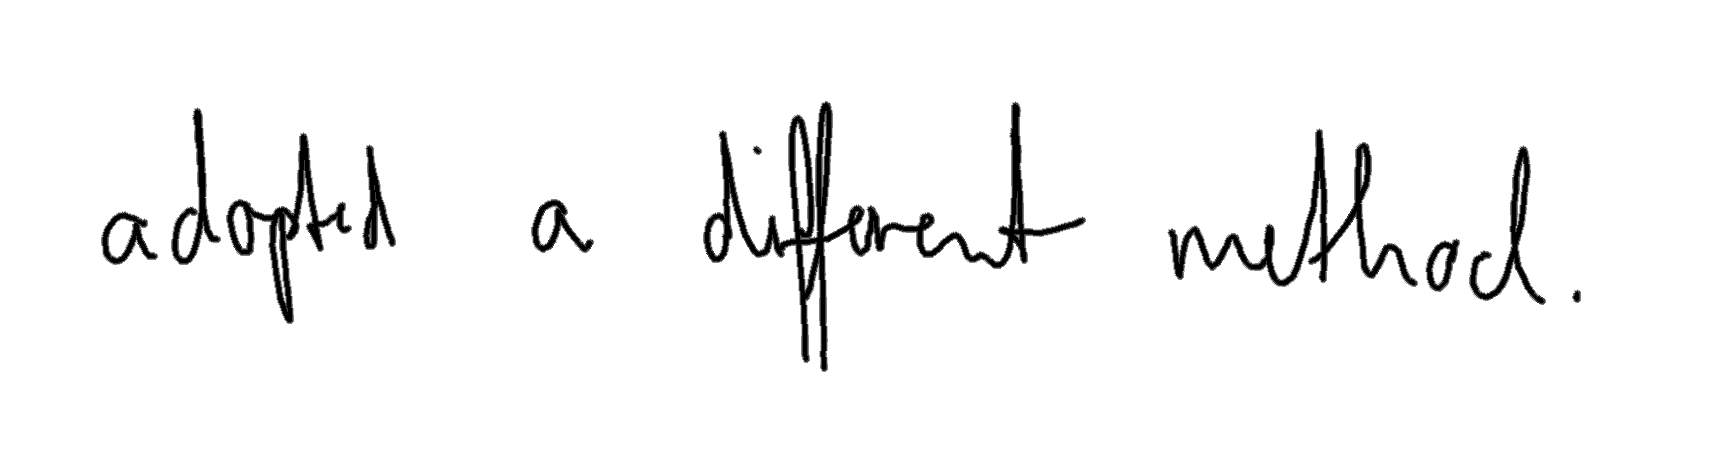 adopted a different method.